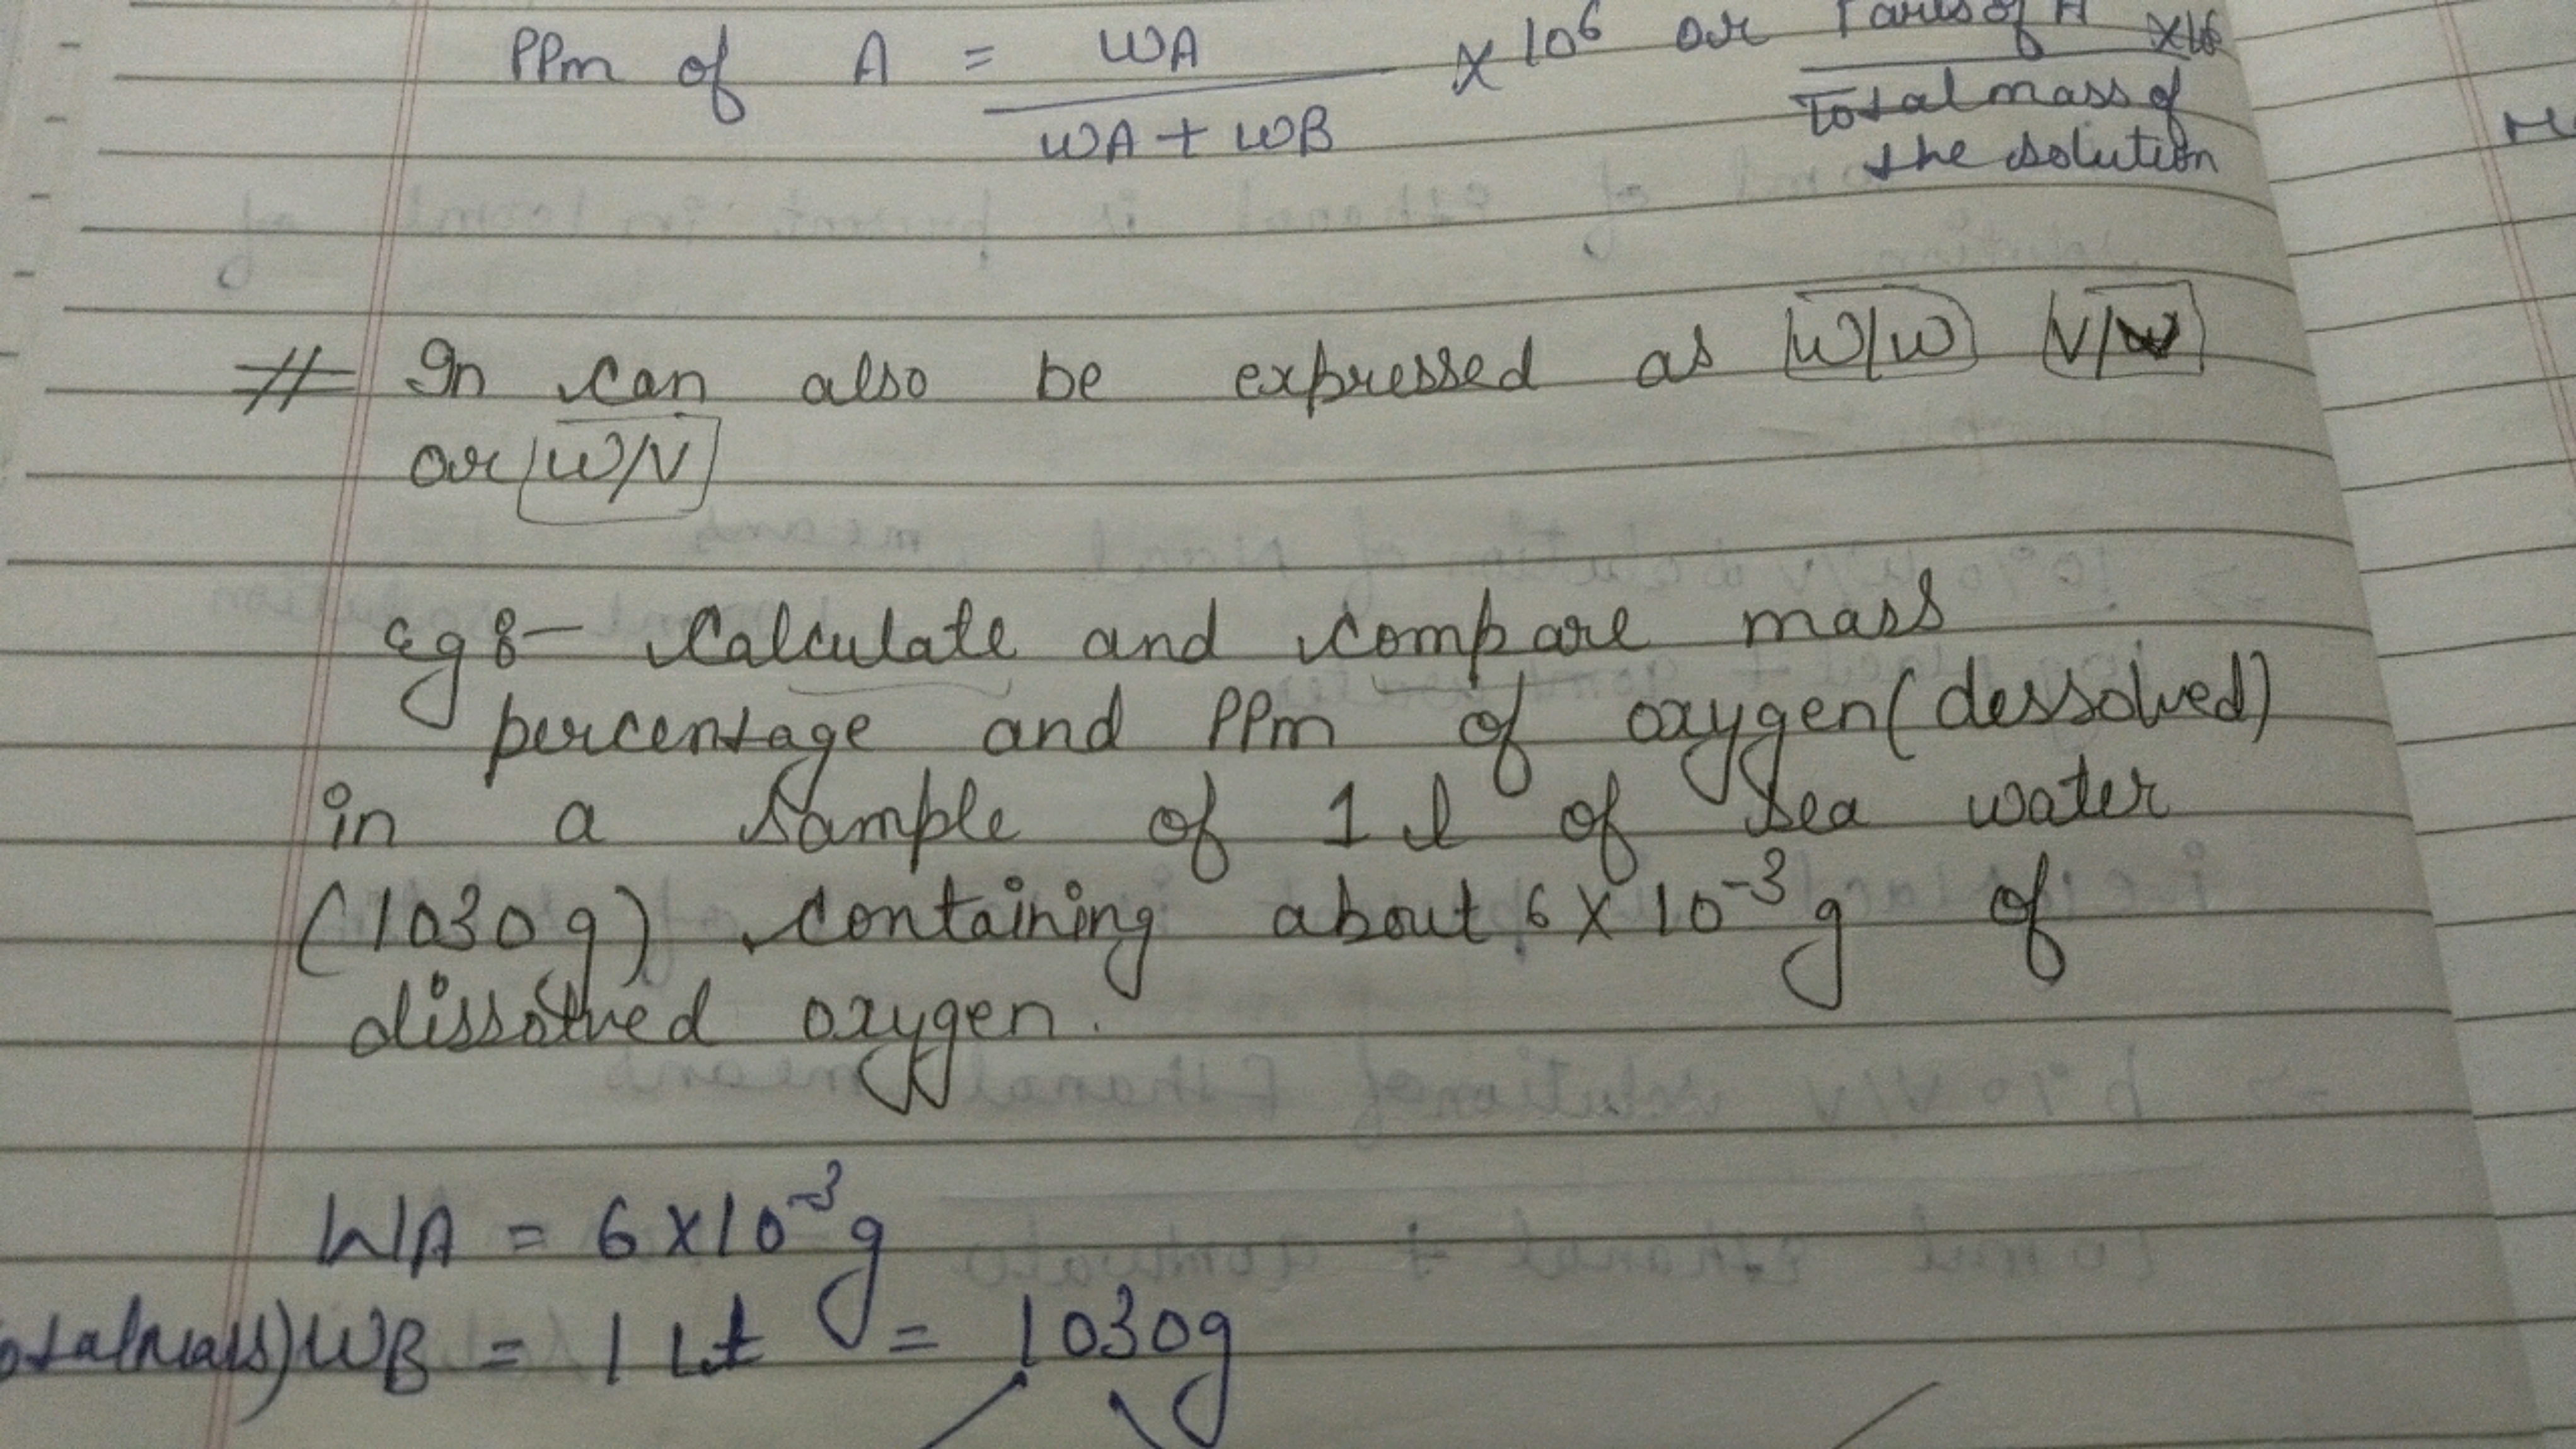 PPm of A = WA / WA + WB × 10⁶ or Parts of A × 10⁶ / Total mass of the solution
# In can also be expressed as W/W V/W
or W/V
eg 8- Calculate and compare mass
percentage and PPm of oxygen (dessolved)
in a sample of 1 l of sea water
(1030g) containing about 6 × 10⁻³ g of
dissolved oxygen.
WA = 6 × 10⁻³ g
WB = 1 Lt = 1030g